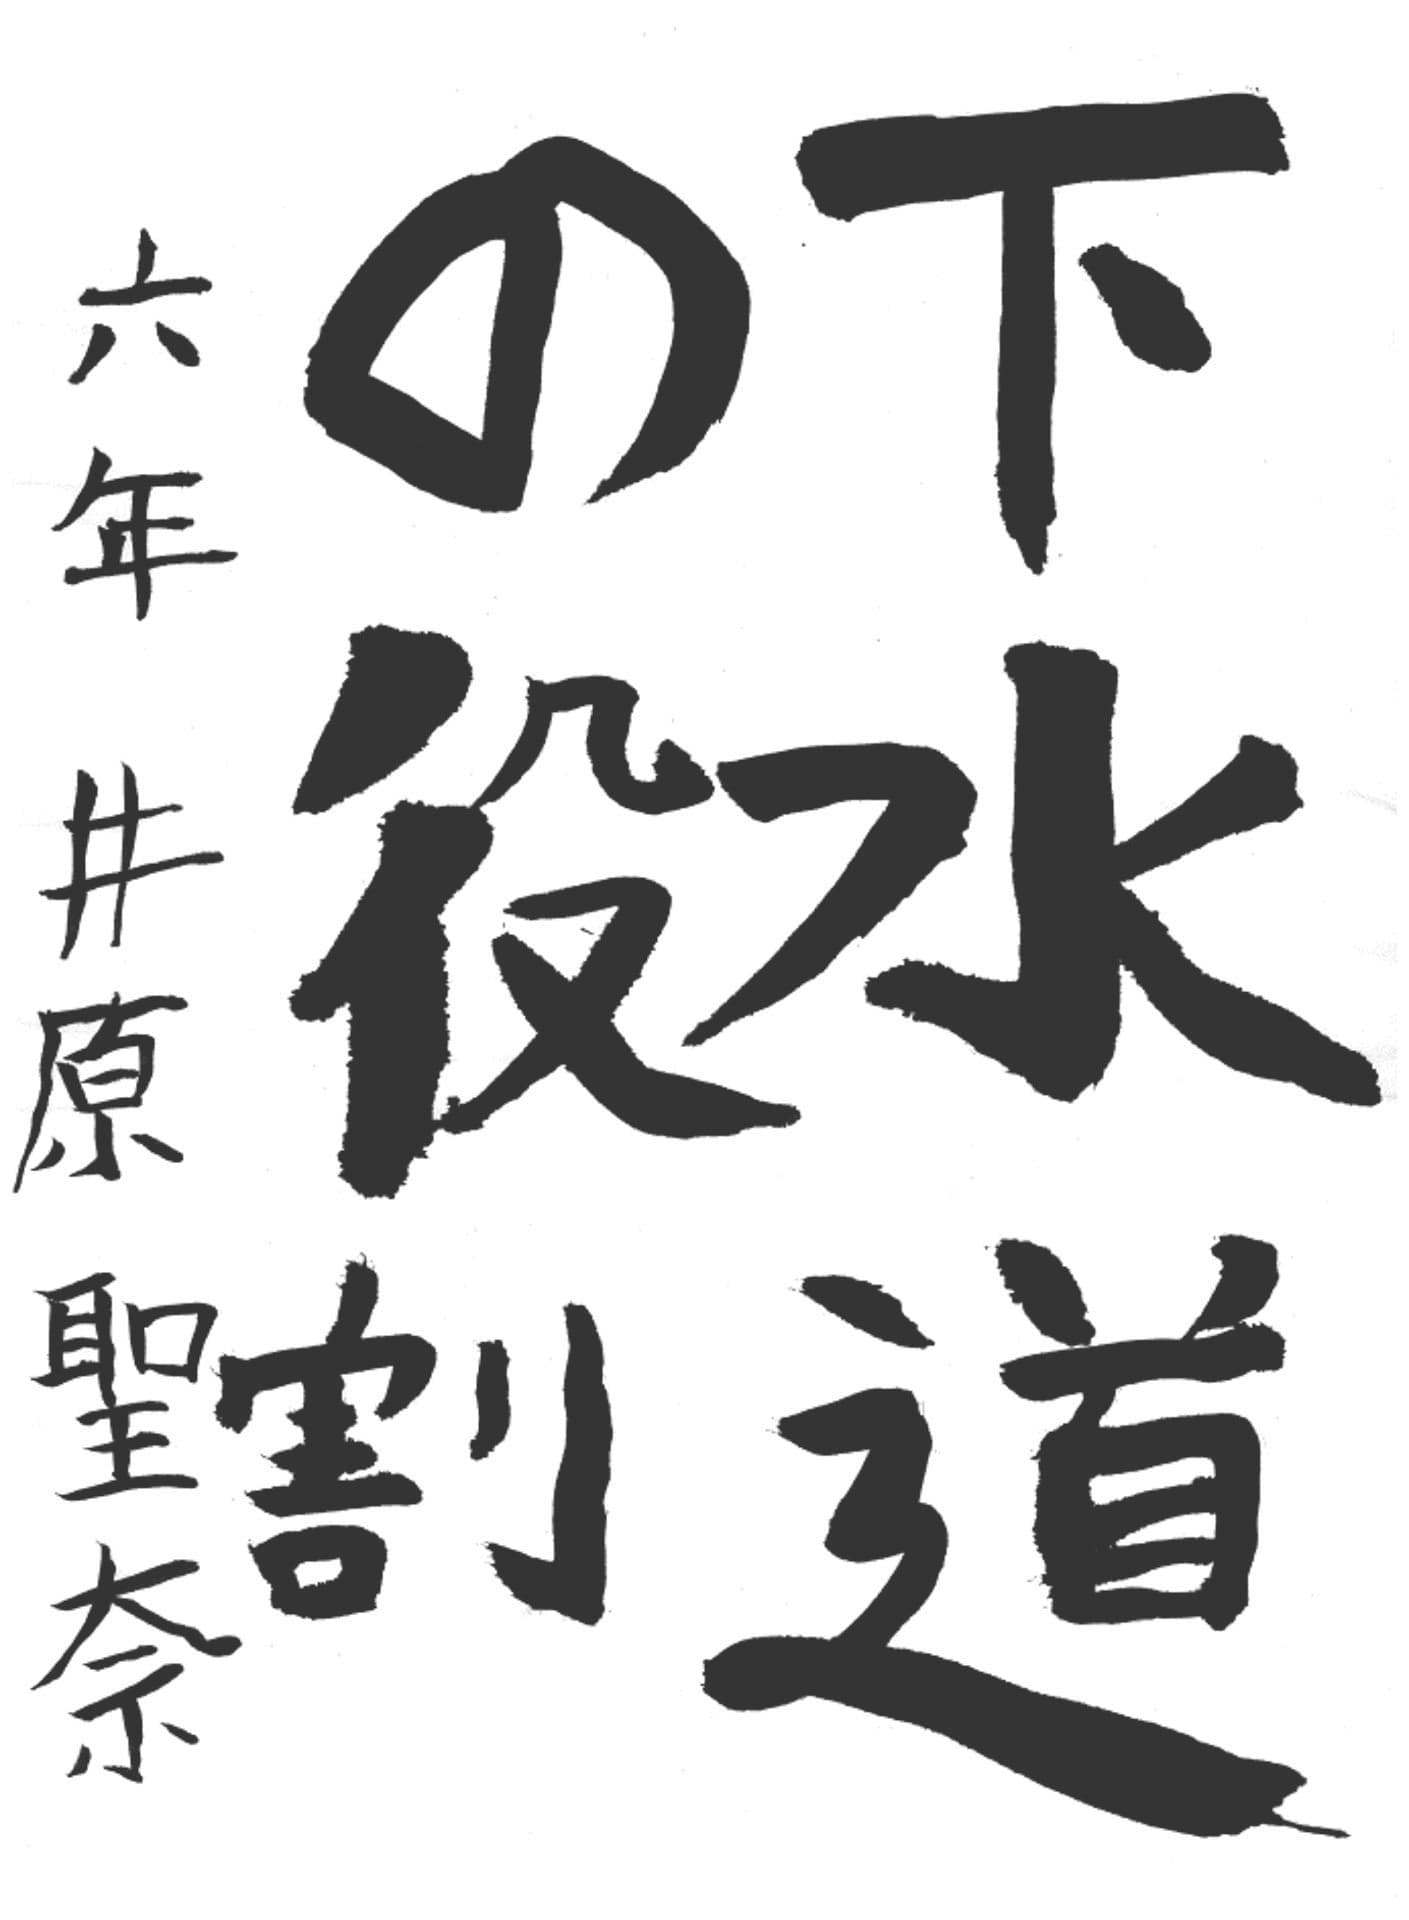 下水道
の役割
六年 井原聖奈